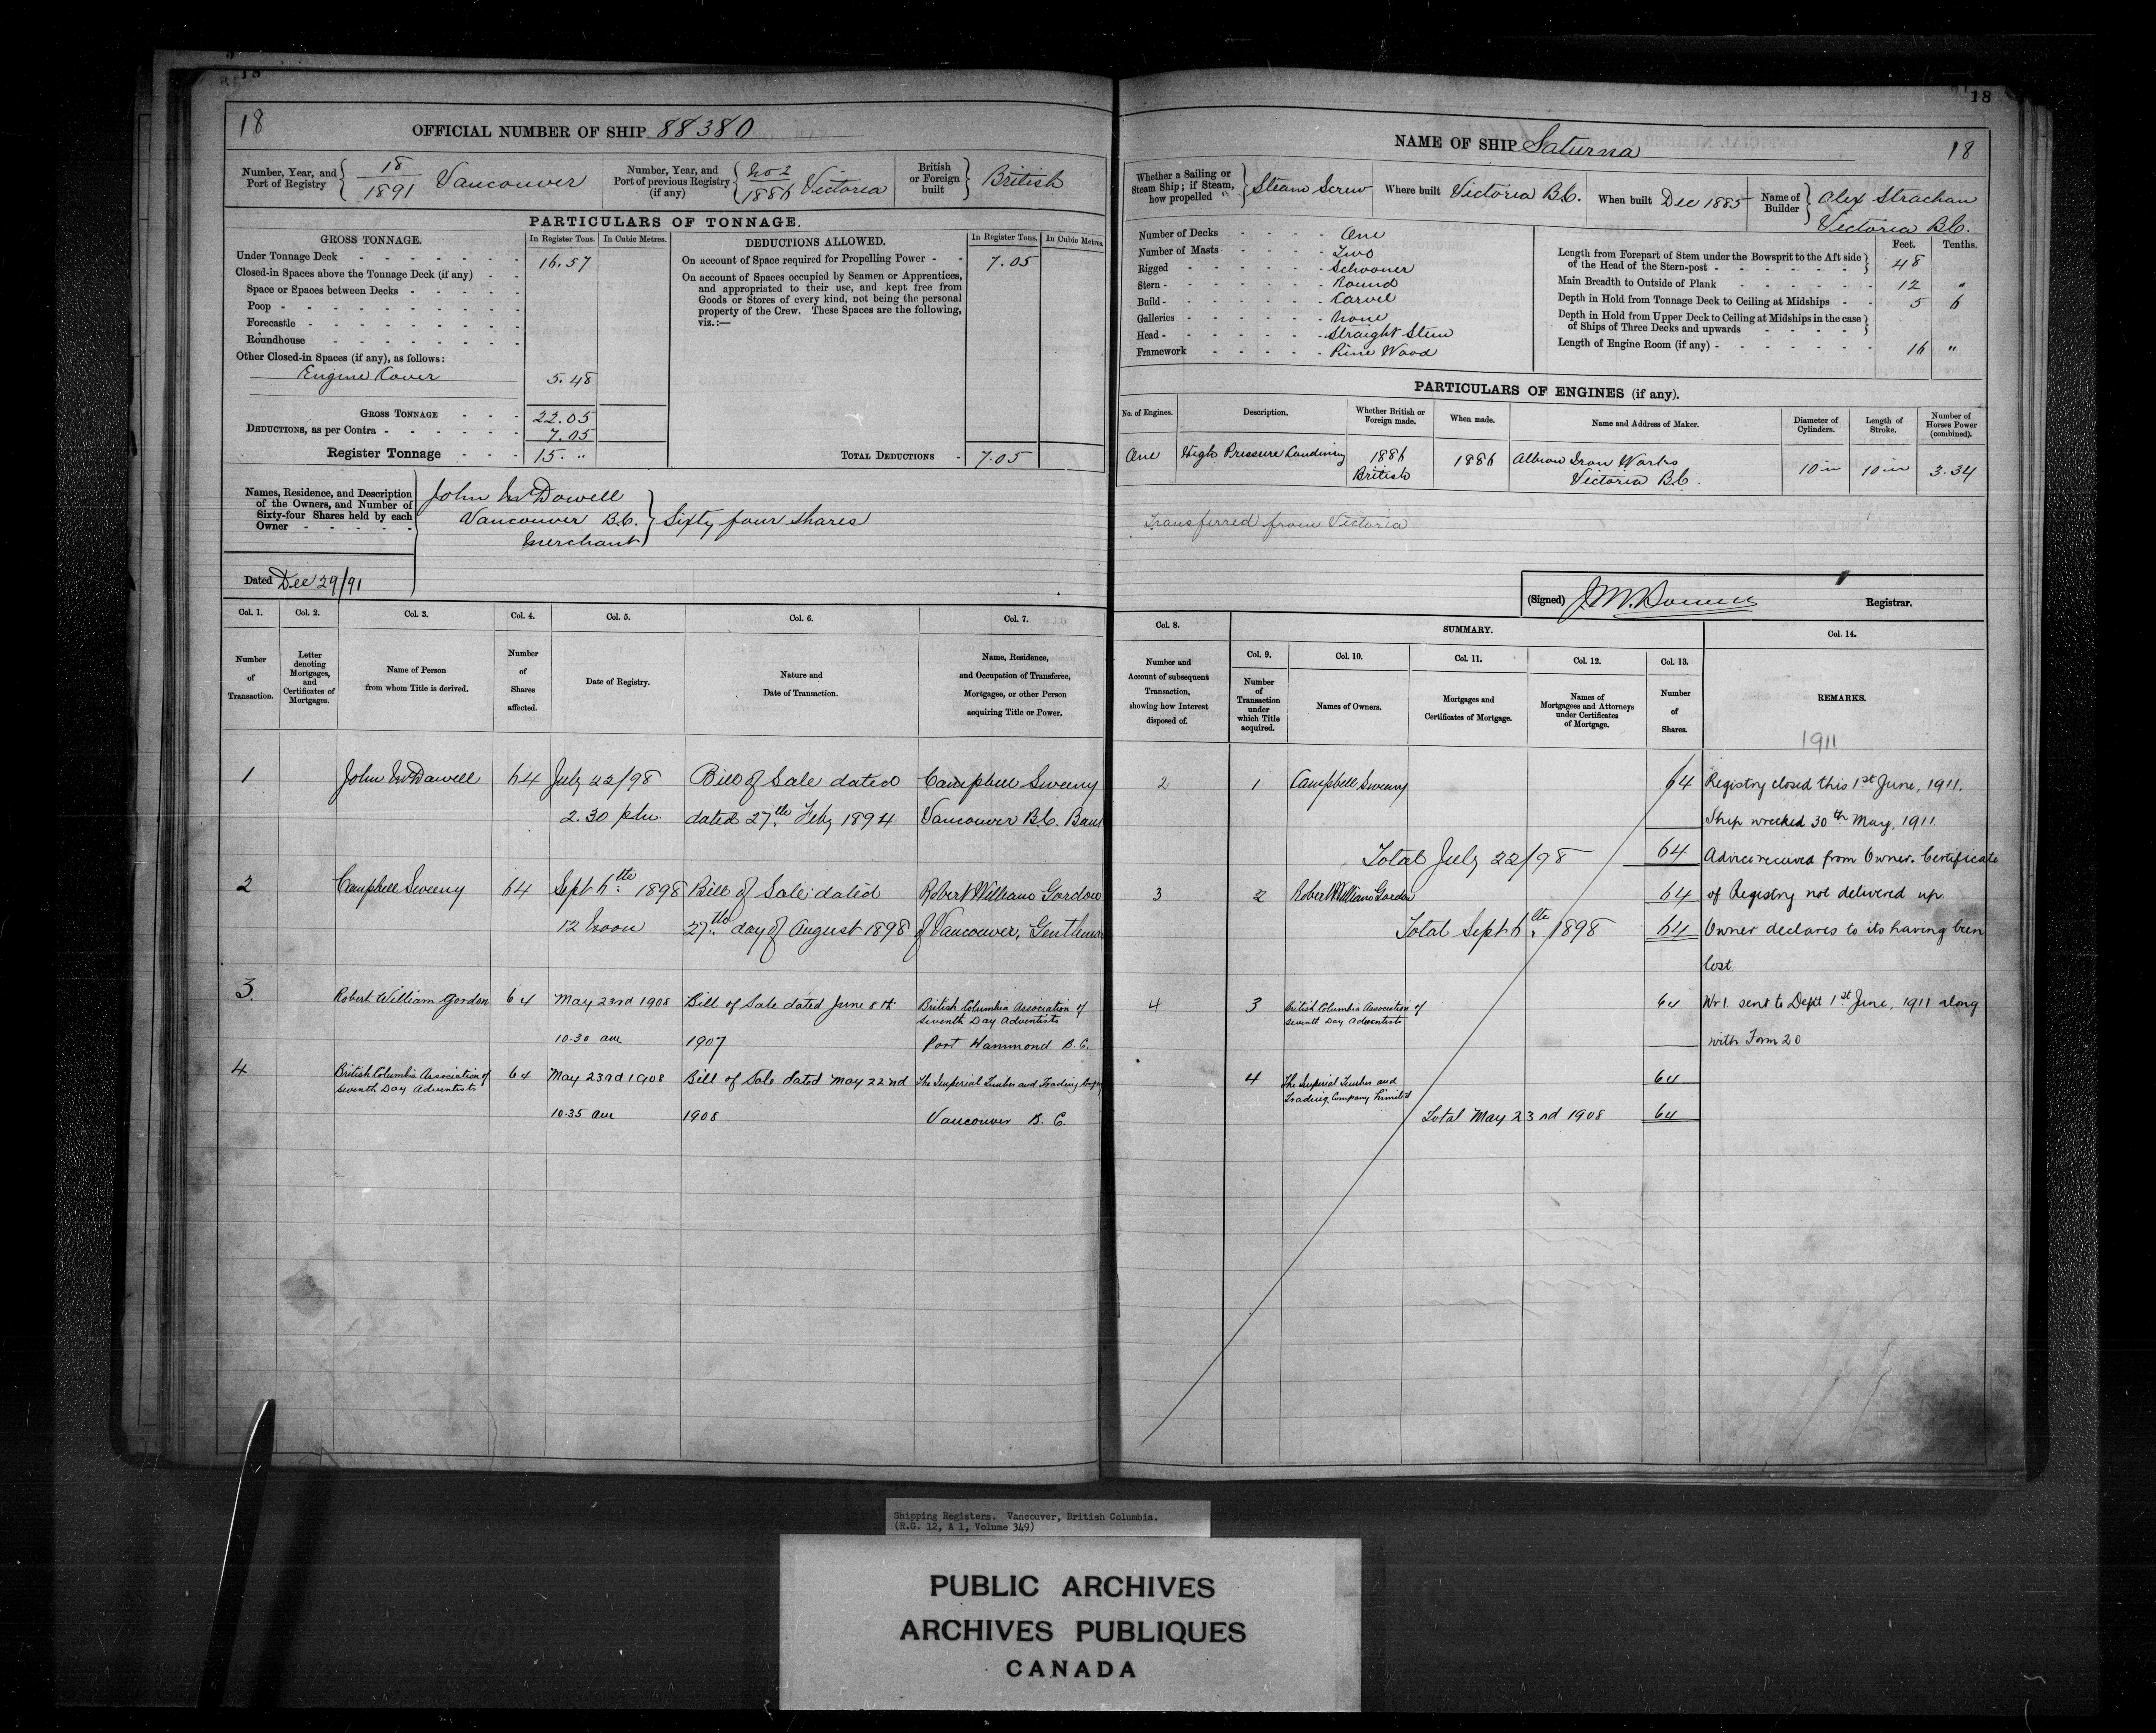 18
18
OFFICIAL NUMBER OF SHIP 88380
Number, Year, and Port of Registry
18/1891 Vancouver
Number, Year, and Port of previous Registry (if any)
No 2/1886 Victoria
British or Foreign built
British
PARTICULARS OF TONNAGE.
GROSS TONNAGE. In Register Tons. In Cubic Metres.
Under Tonnage Deck 16.57
Closed-in Spaces above the Tonnage Deck (if any)
Space or Spaces between Decks
Poop
Forecastle
Roundhouse
Other Closed-in Spaces (if any), as follows:
Engine Cover 5.48
GROSS TONNAGE 22.05
DEDUCTIONS, as per Contra 7.05
Register Tonnage 15. "
DEDUCTIONS ALLOWED. In Register Tons. In Cubic Metres.
On account of Space required for Propelling Power 7.05
On account of Spaces occupied by Seamen or Apprentices,
and appropriated to their use, and kept free from
Goods or Stores of every kind, not being the personal
property of the Crew. These Spaces are the following,
viz.:—
TOTAL DEDUCTIONS 7.05
Names, Residence, and Description
of the Owners, and Number of
Sixty-four Shares held by each
Owner
John McDowell
Vancouver B.C.
Merchant
Sixty four shares
Dated Dec 29/91
Col. 1. Col. 2. Col. 3. Col. 4. Col. 5. Col. 6. Col. 7.
Number of Transaction.
Letter denoting Mortgages, and Certificates of Mortgages.
Name of Person from whom Title is derived.
Number of Shares affected.
Date of Registry.
Nature and Date of Transaction.
Name, Residence, and Occupation of Transferee, Mortgagee, or other Person acquiring Title or Power.
1 John McDowell 64 July 22/98 Bill of Sale dated Campbell Sweeny
2.30 pm. dated 27th Feby 1894 Vancouver B.C.
2 Campbell Sweeny 64 Sept 6th 1898 Bill of Sale dated Robert William Gordon
12 Noon 27th day of August 1898 of Vancouver, Gentleman
3. Robert William Gordon 64 May 23rd 1908 Bill of Sale dated June 8th British Columbia Association of
Seventh Day Adventists
10.30 am 1907 Port Hammond B.C.
4 British Columbia Association of 64 May 23rd 1908 Bill of Sale dated May 22nd The Imperial Timber and Trading
Seventh Day Adventists
10.35 am 1908 Vancouver B.C.
18
NAME OF SHIP Saturna 18
Whether a Sailing or Steam Ship; if Steam, how propelled
Steam Screw
Where built Victoria B.C.
When built Dec 1885
Name of Builder
Alex Strachan
Victoria B.C.
Number of Decks One
Number of Masts Two
Rigged Schooner
Stern Round
Build Carvel
Galleries None
Head Straight Stem
Framework Pine Wood
Feet. Tenths.
Length from Forepart of Stem under the Bowsprit to the Aft side
of the Head of the Stern-post 48
Main Breadth to Outside of Plank 12 "
Depth in Hold from Tonnage Deck to Ceiling at Midships 5 6
Depth in Hold from Upper Deck to Ceiling at Midships in the case
of Ships of Three Decks and upwards
Length of Engine Room (if any) 16 "
PARTICULARS OF ENGINES (if any).
No. of Engines. Description. Whether British or Foreign made. When made. Name and Address of Maker. Diameter of Cylinders. Length of Stroke. Number of Horses Power (combined).
One High Pressure 1886 1886 Albion Iron Works 10 in 10 in 3.34
British Victoria B.C.
Transferred from Victoria
(Signed) Registrar.
Col. 8. SUMMARY. Col. 14.
Number and Account of subsequent Transaction, showing how Interest disposed of.
Col. 9. Col. 10. Col. 11. Col. 12. Col. 13.
Number of Transaction under which Title acquired.
Names of Owners.
Mortgages and Certificates of Mortgage.
Names of Mortgagees and Attorneys under Certificates of Mortgage.
Number of Shares.
REMARKS.
1911
2 1 Campbell Sweeny 64 Registry closed this 1st June, 1911.
Ship wrecked 30th May, 1911.
Total July 22/98 64 Advice received from Owner. Certificate
3 2 Robert William Gordon 64 of Registry not delivered up.
Total Sept 6th 1898 64 Owner declares to its having been
lost.
4 3 British Columbia Association of 64 Wr1 sent to Dept 1st June, 1911 along
Seventh Day Adventists
with Form 20
4 The Imperial Timber and 64
Trading Company Limited
Total May 23rd 1908 64
Shipping Registers. Vancouver, British Columbia.
(R.G. 12, A 1, Volume 349)
PUBLIC ARCHIVES
ARCHIVES PUBLIQUES
CANADA